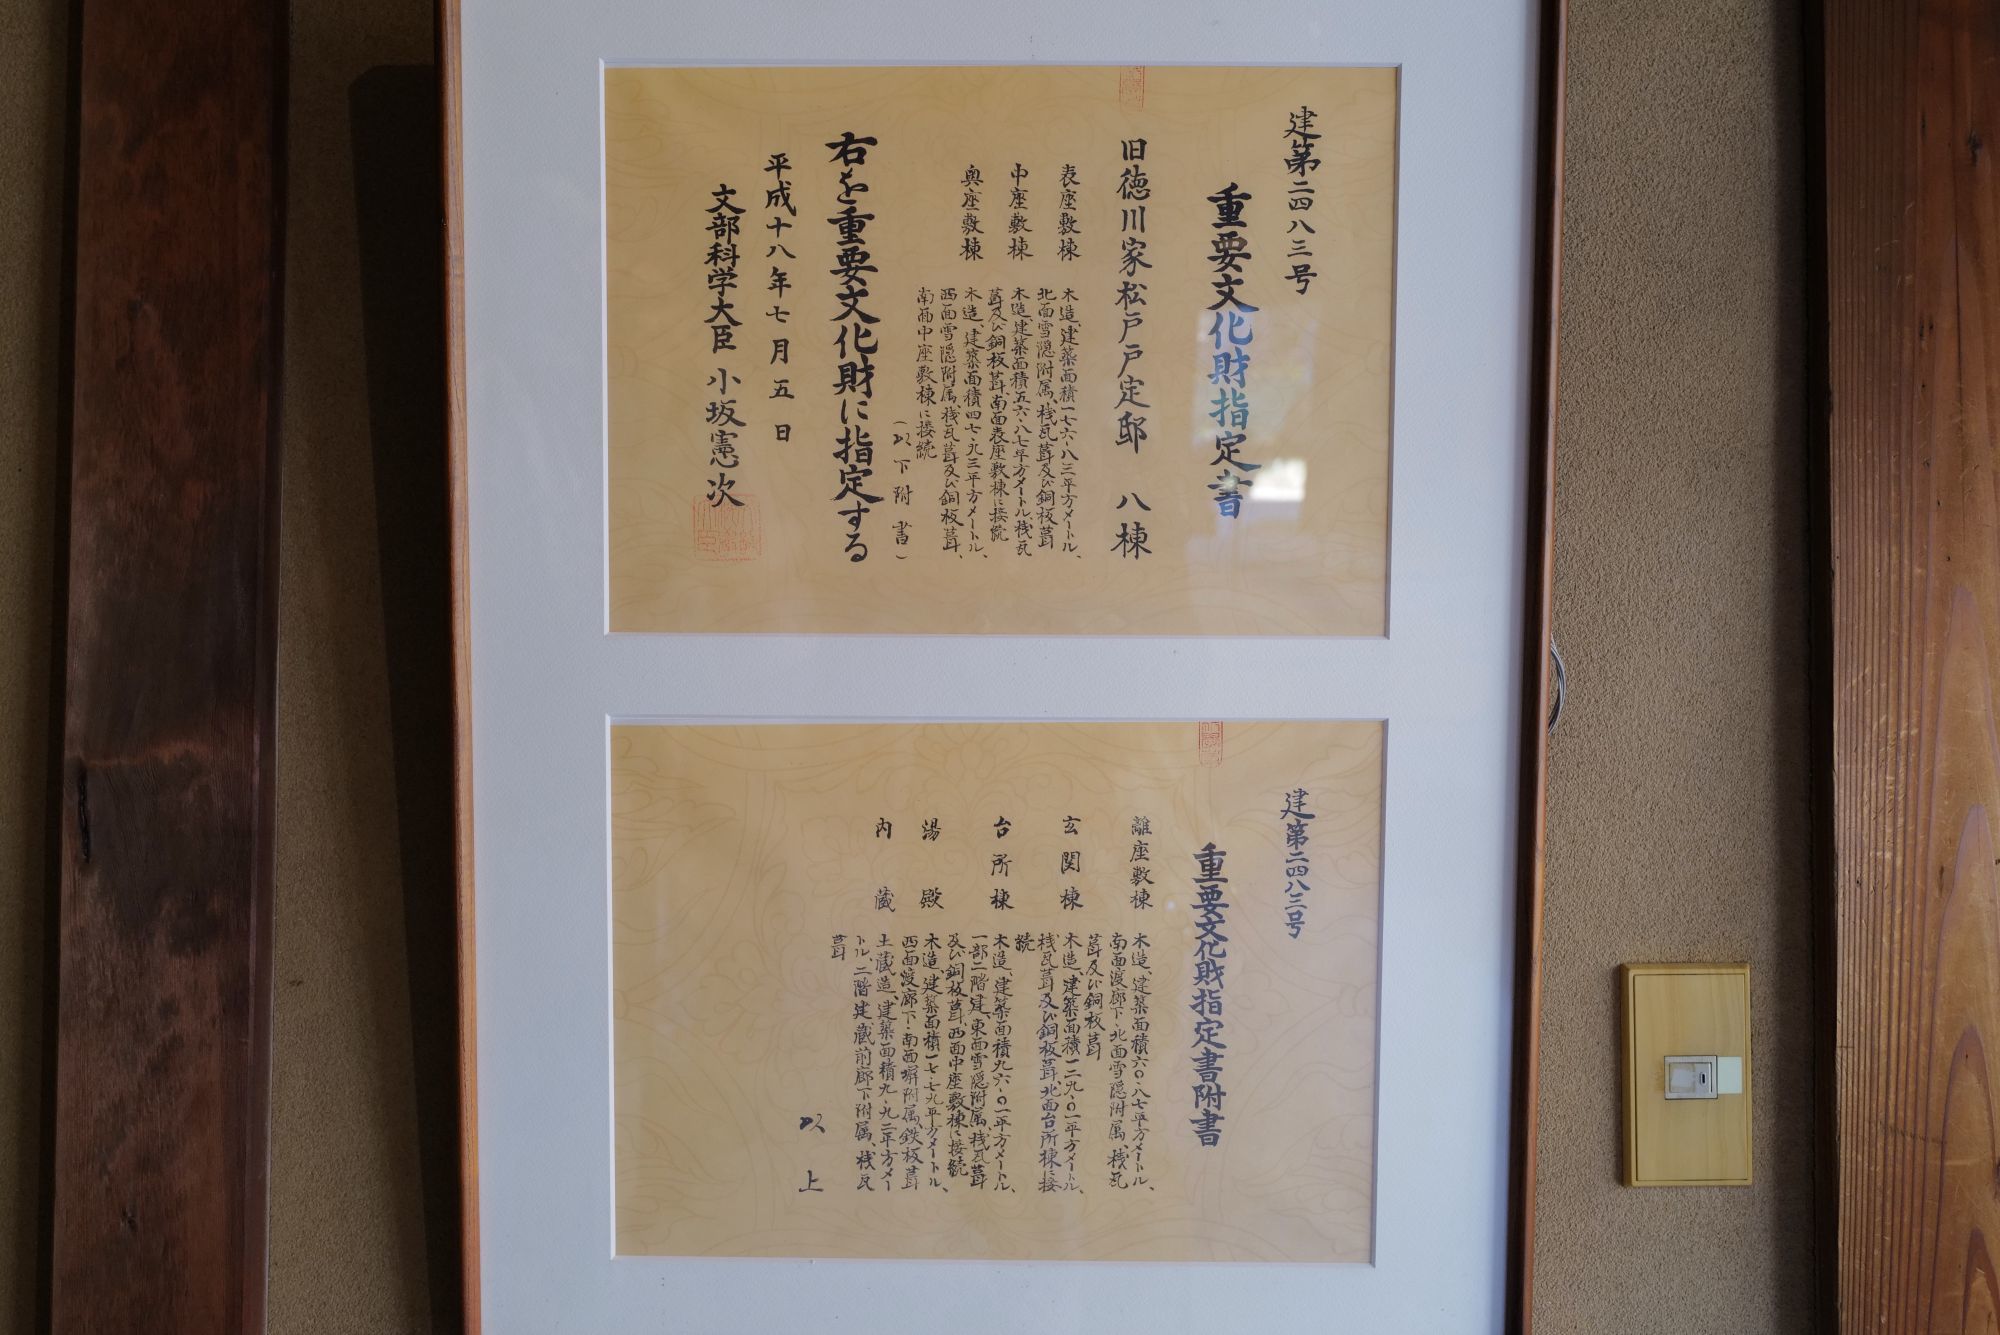 建第二四八三号
重要文化財指定書
旧徳川家松戸戸定邸 八棟
表座敷棟 木造、建築面積一七六・八三平方メートル、
北面雪隠附属、桟瓦葺及び銅板葺
中座敷棟 木造、建築面積五六・八七平方メートル、桟瓦
葺及び銅板葺、南面表座敷棟に接続
奥座敷棟 木造、建築面積四七・九三平方メートル、
西面雪隠附属、桟瓦葺及び銅板葺、
南面中座敷棟に接続
(以下附書)
右を重要文化財に指定する
平成十八年七月五日
文部科学大臣 小坂憲次
建第二四八三号
重要文化財指定書附書
離座敷棟 木造、建築面積六〇・八七平方メートル、
南面渡廊下・北面雪隠附属、桟瓦
葺及び銅板葺
玄関棟 木造、建築面積一二九・〇一平方メートル、
桟瓦葺及び銅板葺、北面台所棟に接
続
台所棟 木造、建築面積九六・〇一平方メートル、
一部二階建、東面雪隠附属、桟瓦葺
及び銅板葺、西面中座敷棟に接続
湯殿 木造、建築面積一七・七九平方メートル、
西面渡廊下・南西塀附属、鉄板葺
内蔵 土蔵造、建築面積九・九二平方メー
トル、二階建、蔵前廊下附属、桟瓦
葺
以上